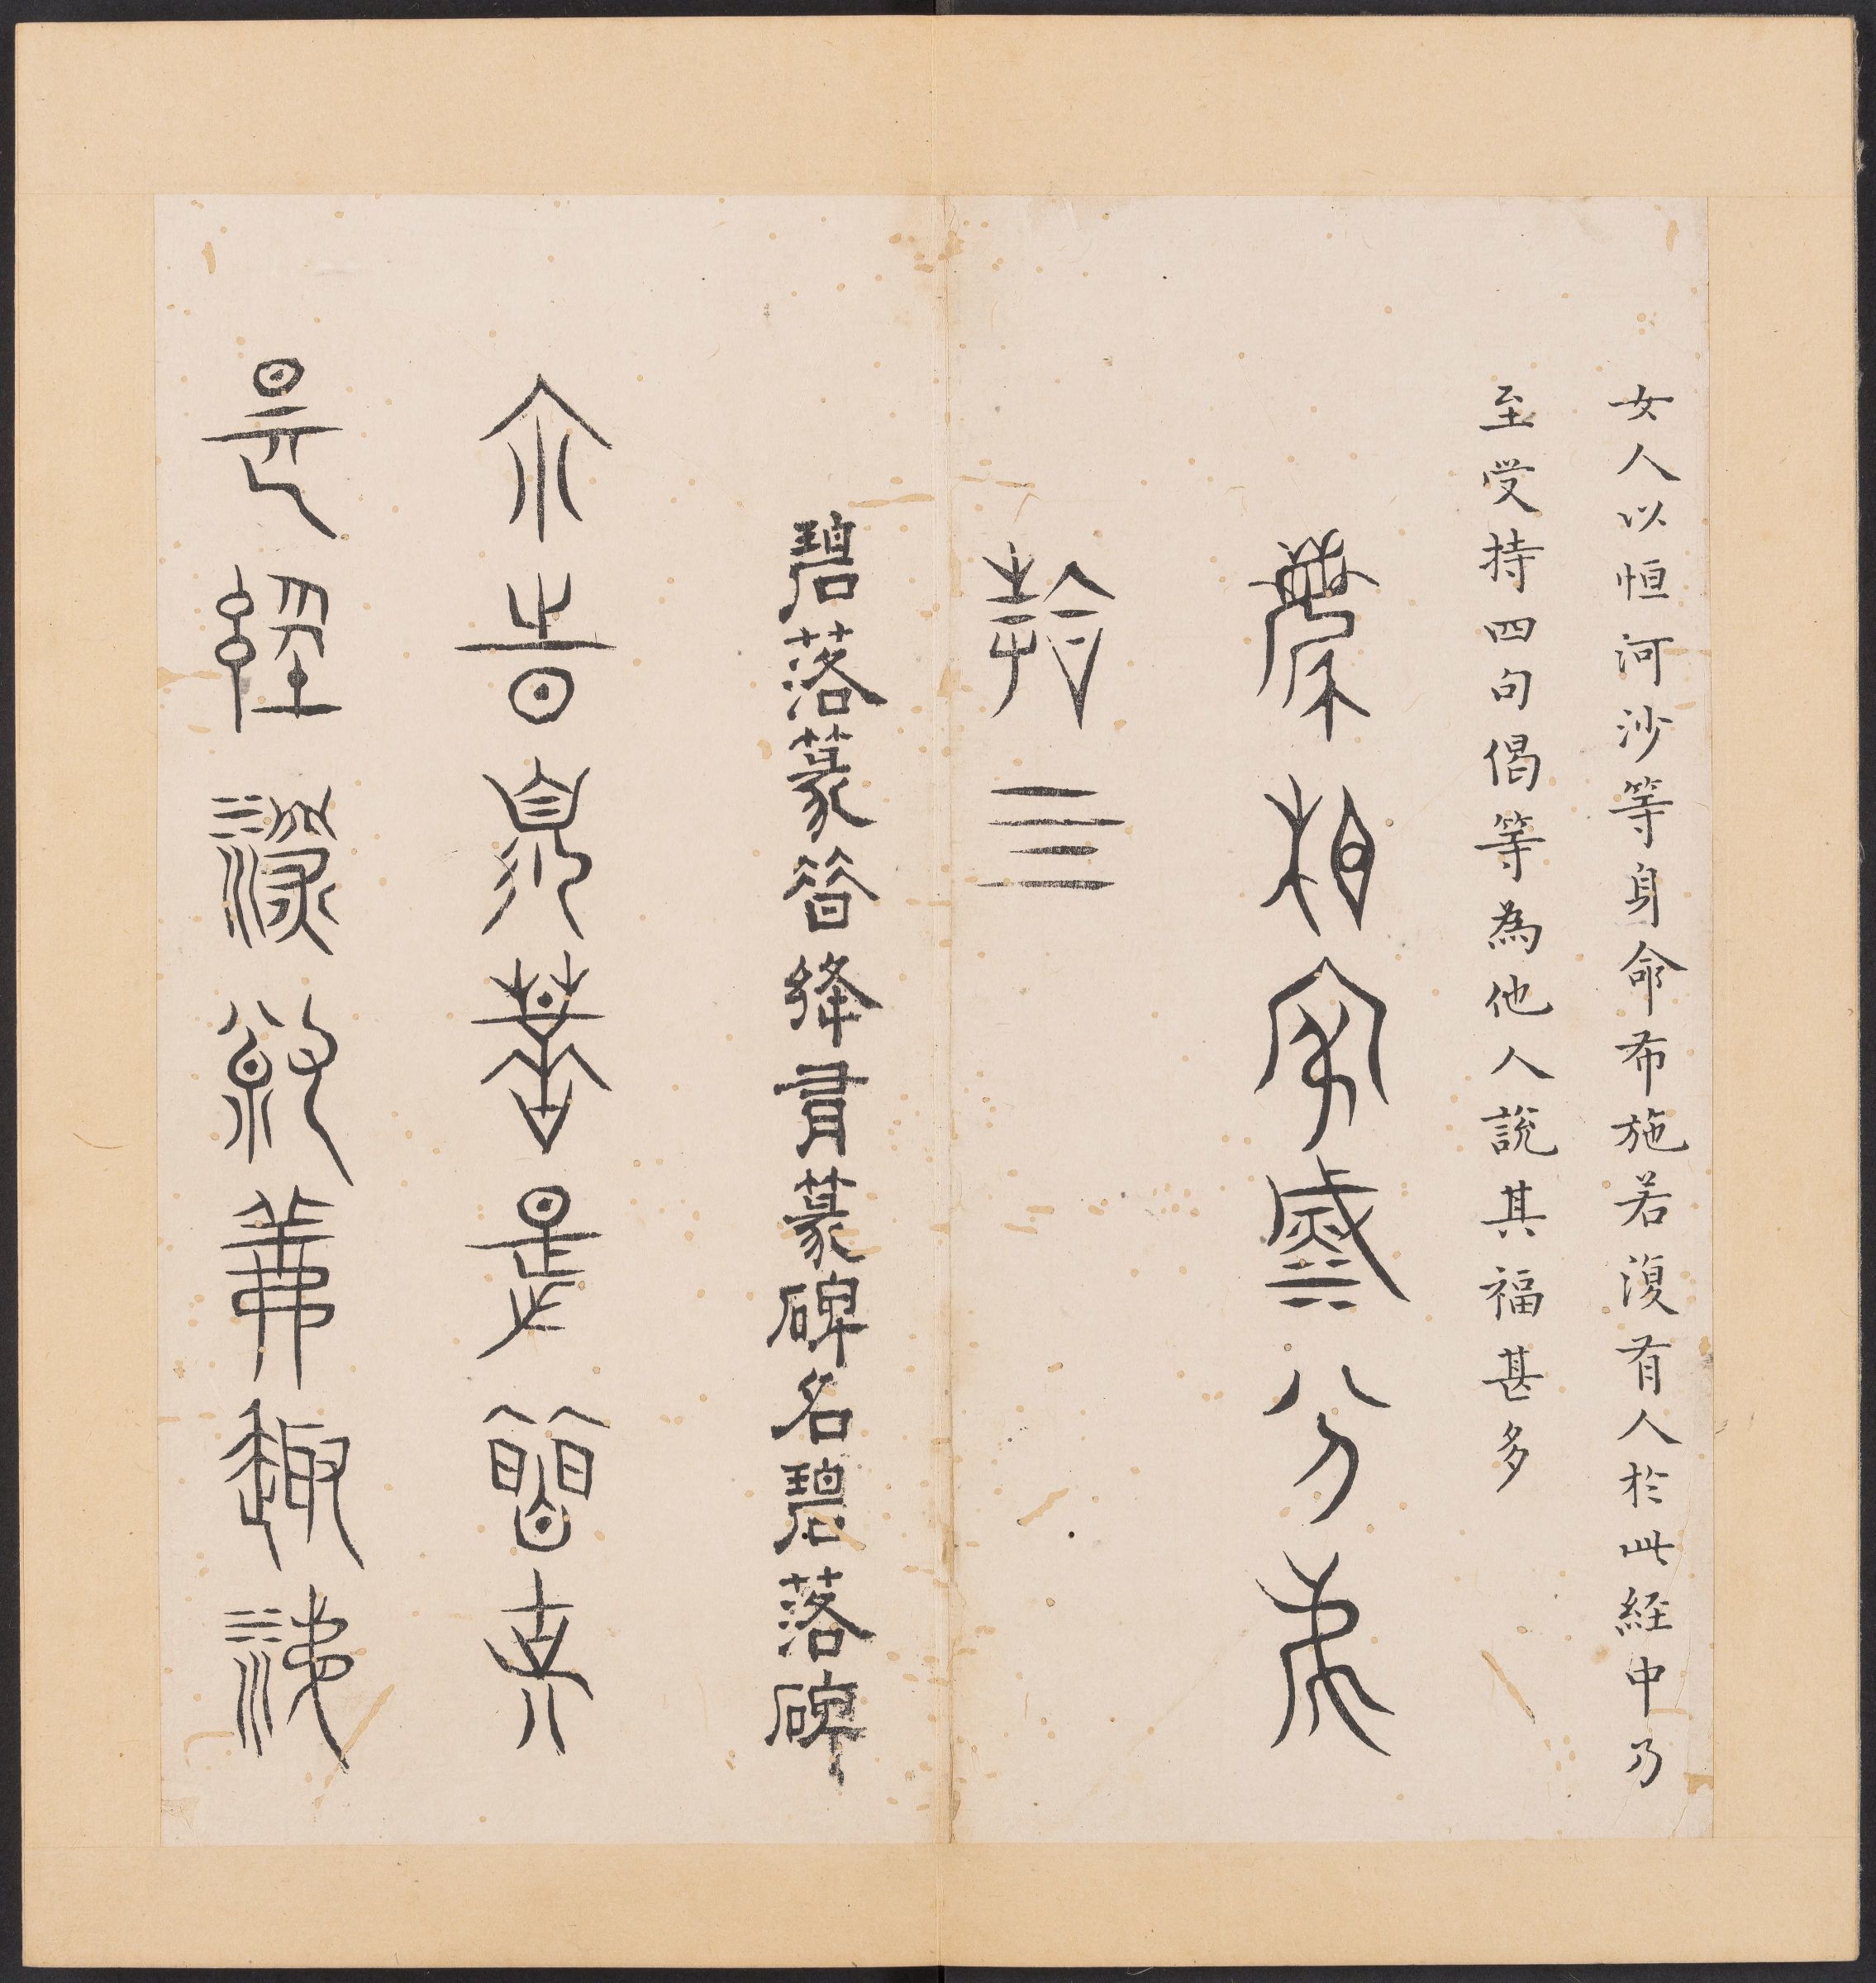 女人以恒河沙等身命布施若復有人於此経中乃
至受持四句偈等為他人說其福甚多
離相寂滅分第
十四
碧落篆晉絳篆碑名碧落碑
尒時須菩提聞說
是經深解義趣涕